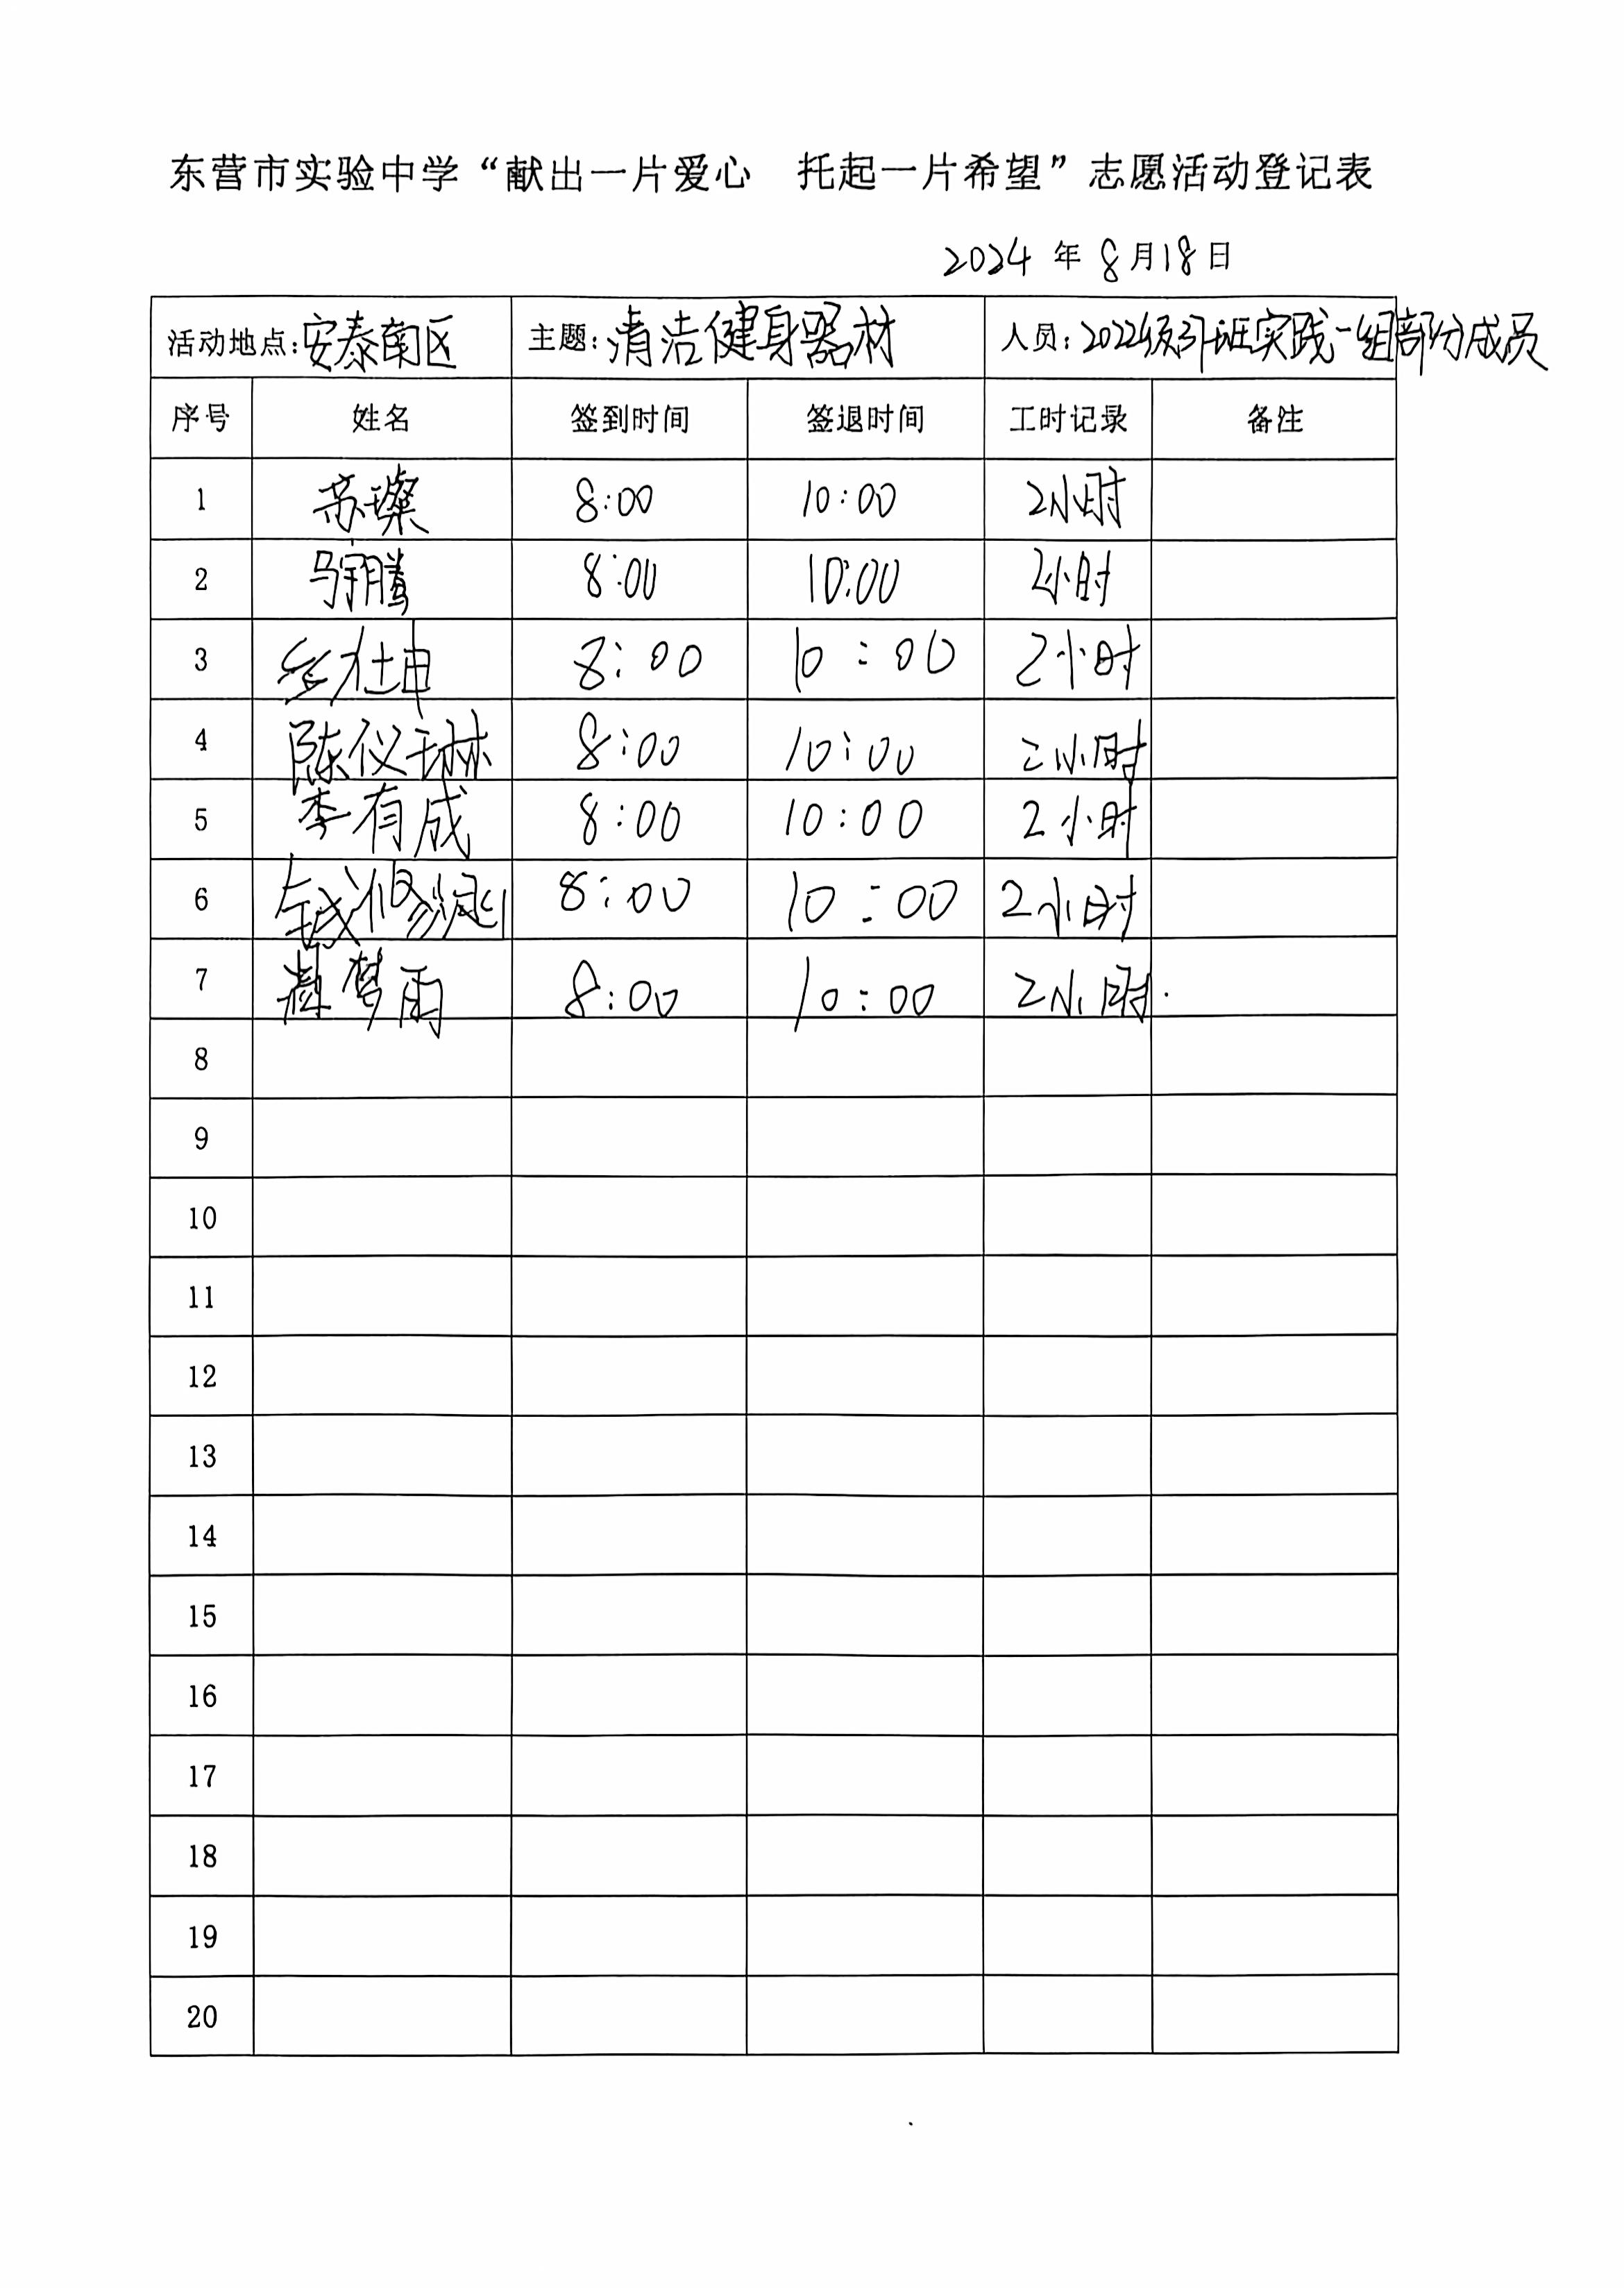 东营市实验中学“献出一片爱心 托起一片希望”志愿活动登记表
2024 年 8 月 18 日
活动地点:安泰南区 主题:清洁健身器材 人员:2022级37班实践一组部分成员
序号 姓名 签到时间 签退时间 工时记录 备注
1 苏璨 8:00 10:00 2小时
2 马宇腾 8:00 10:00 2小时
3 8:00 10:00 2小时
4 陈仪琳 8:00 10:00 2小时
5 李有成 8:00 10:00 2小时
6 8:00 10:00 2小时
7 梦雨 8:00 10:00 2小时
8
9
10
11
12
13
14
15
16
17
18
19
20